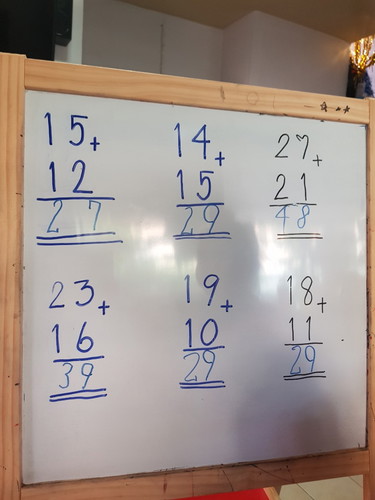 15+
12
27
14+
15
29
27+
21
48
23+
16
39
19+
10
29
18+
11
29